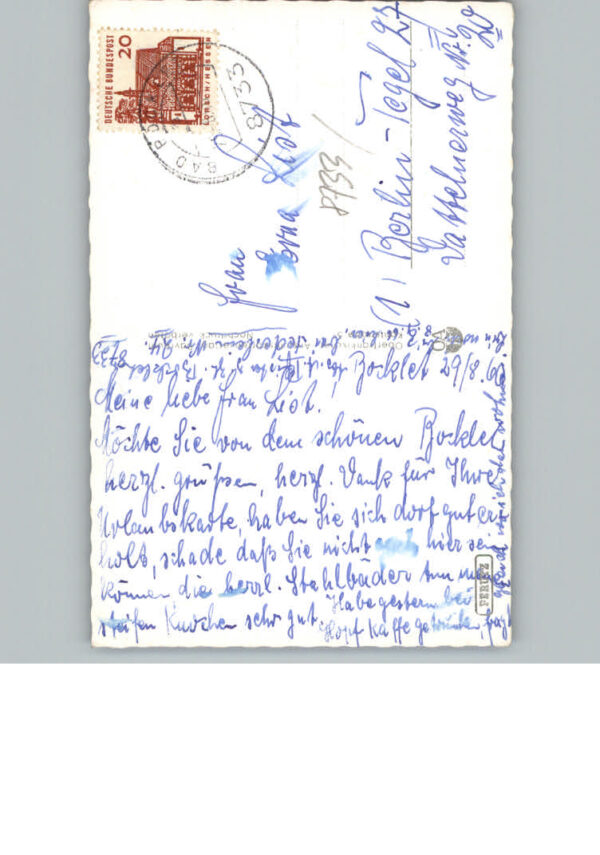 DEUTSCHE BUNDESPOST
20
LORSCH/HESSEN
BAD
8733
Frau
Erna List
8733
(1) Berlin-Tegel 27
Nr. 20
Bocklet 29/8.
Meine liebe Frau List!
Möchte Sie von dem schönen Bocklet
herzl. grüßen, herzl. Dank für Ihre
Urlaubskarte, haben Sie sich dort gut er-
holt, schade daß Sie nicht hier sein
können die herrl. Stahlbäder tun
steifen Knochen sehr gut.
Habe gestern bei
Hopf Kaffe getrunken,
PERUTZ